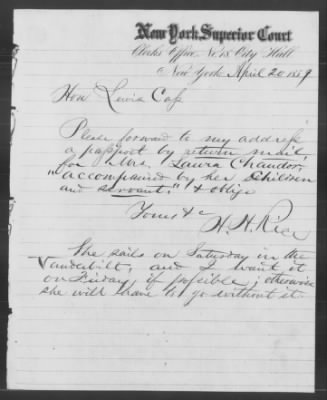 New York Superior Court
Clerks Office, No. 18 City Hall
New York April 20 1859
Hon Lewis Cass
Please forward to my address
a passport by return mail,
for Mrs. Laura Chandor,
"accompanied by her children
and servant," & oblige
Yours &c
H. H. Rice
She sails on Saturday in the
Vanderbilt, and I want it
on Friday if possible; otherwise
she will have to go without it